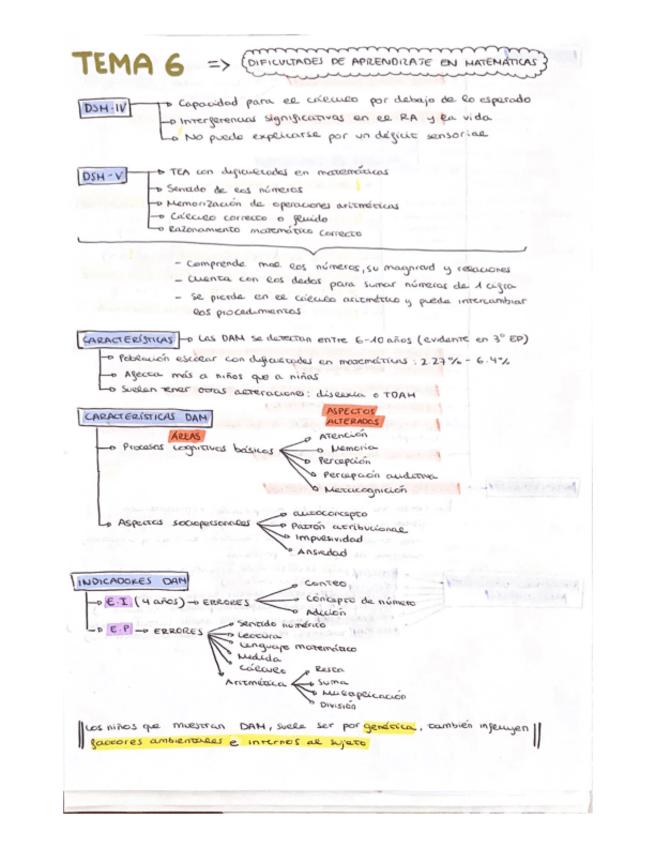 TEMA 6 => DIFICULTADES DE APRENDIZAJE EN MATEMÁTICAS
DSM-IV → Capacidad para el cálculo por debajo de lo esperado
→ Interferencias significativas en el RA y la vida
→ No puede explicarse por un déficit sensorial
DSM-V → TEA con dificultades en matemáticas
→ Sentido de los números
→ Memorización de operaciones aritméticas
→ Cálculo correcto o fluido
→ Razonamiento matemático correcto
- Comprende mal los números, su magnitud y relaciones
- Cuenta con los dedos para sumar números de 1 cifra
- Se pierde en el cálculo aritmético y puede intercambiar
los procedimientos
CARACTERÍSTICAS → Las DAM se detectan entre 6-10 años (evidente en 3º EP)
→ Población escolar con dificultades en matemáticas: 2.27% - 6.4%
→ Afecta más a niños que a niñas
→ Suelen tener otras alteraciones: dislexia o TDAH
CARACTERÍSTICAS DAM
ASPECTOS
ALTERADOS
ÁREAS
→ Procesos cognitivos básicos
→ Atención
→ Memoria
→ Percepción
→ Percepción auditiva
→ Metacognición
→ Aspectos sociopersonales
→ Autoconcepto
→ Patrón atribucional
→ Impulsividad
→ Ansiedad
INDICADORES DAM
→ E.I (4 años) → ERRORES
→ Conteo
→ Concepto de número
→ Adición
→ E.P → ERRORES
→ Sentido numérico
→ Lectura
→ Lenguaje matemático
→ Medida
→ Cálculo
→ Aritmética
→ Resta
→ Suma
→ Multiplicación
→ División
Los niños que muestran DAM, suele ser por genética, también influyen
factores ambientales e internos al sujeto